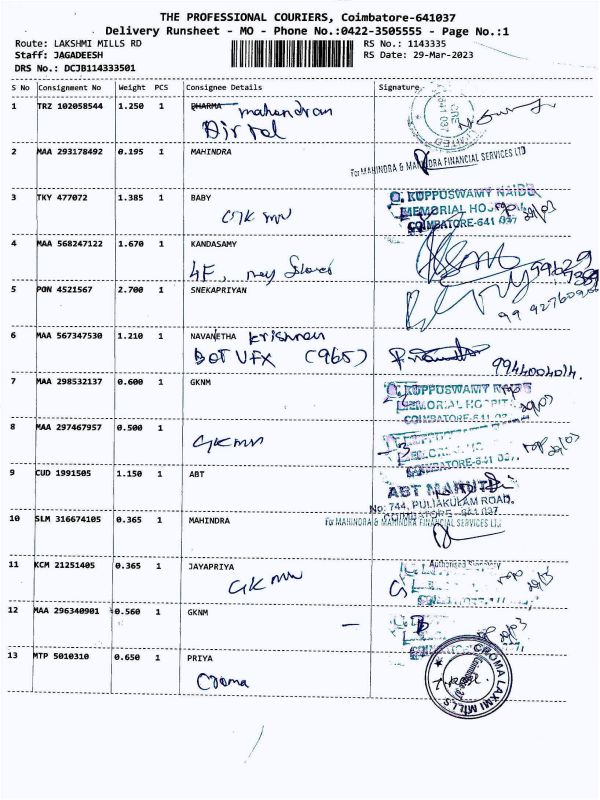 THE PROFESSIONAL COURIERS, Coimbatore-641037
Delivery Runsheet - MO - Phone No.:0422-3505555 - Page No.:1
Route: LAKSHMI MILLS RD RS No.: 1143335
Staff: JAGADEESH RS Date: 29-Mar-2023
DRS No.: DCJB114333501
S No Consignment No Weight PCS Consignee Details Signature
1 TRZ 102058544 1.250 1 DHARMA mahendran
Airtel
2 MAA 293178492 0.195 1 MAHINDRA
For MAHINDRA & MAHINDRA FINANCIAL SERVICES LTD
3 TKY 477072 1.385 1 BABY
G. KUPPUSWAMY NAIDU
MEMORIAL HOSPITAL
COIMBATORE-641 037
GK MN
4 MAA 568247122 1.670 1 KANDASAMY
4F,
5 PON 4521567 2.700 1 SNEKAPRIYAN
6 MAA 567347530 1.210 1 NAVANETHA Krishnan
BOT VFX (965) 9944004014.
7 MAA 298532137 0.600 1 GKNM
KUPPUSWAMY NAIDU
MEMORIAL HOSPIT
COIMBATORE-641 03
8 MAA 297467957 0.500 1
GK MN
9 CUD 1991505 1.150 1 ABT
ABT MARUTI
No: 744, PULIAKULAM ROAD,
COIMBATORE - 641 037
10 SLM 316674105 0.365 1 MAHINDRA
For MAHINDRA & MAHINDRA FINANCIAL SERVICES LTD
11 KCM 21251405 0.365 1 JAYAPRIYA
Authorised Signatory
GK MN
12 MAA 296340901 0.560 1 GKNM
13 MTP 5010310 0.650 1 PRIYA
Croma
CROMA LAXMI MILLS